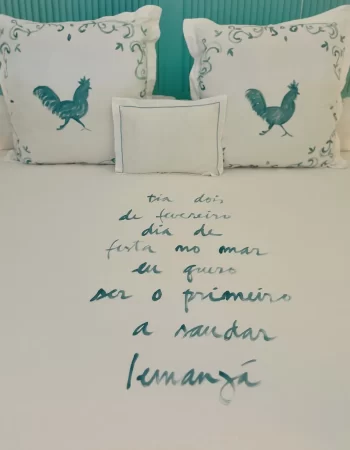 dia dois
de fevereiro
dia de
festa no mar
eu quero
ser o primeiro
a saudar
Iemanjá